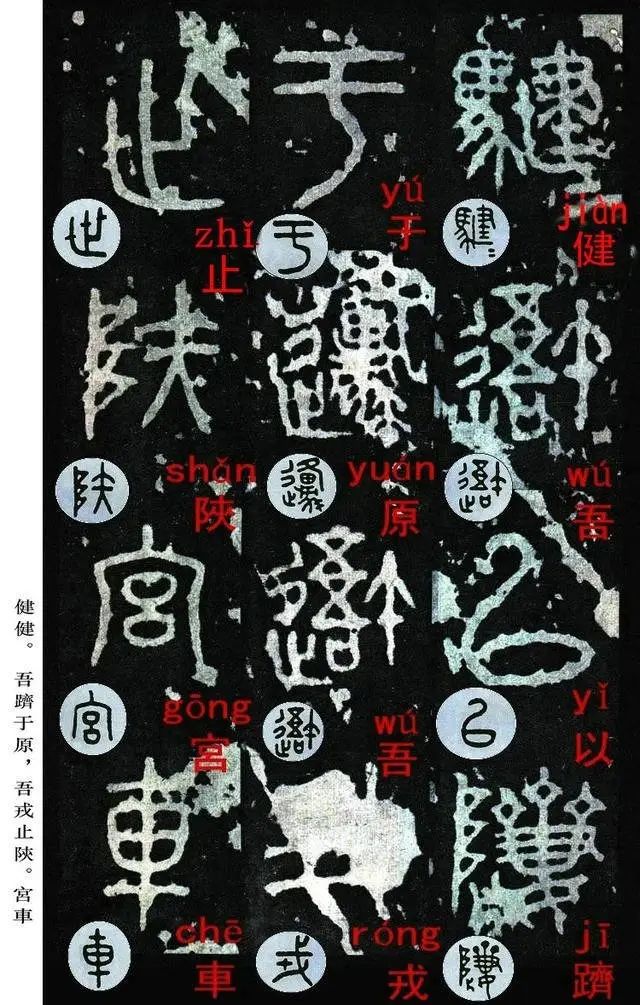 jiàn
健
wú
吾
yǐ
以
jī
躋
yú
于
yuán
原
wú
吾
róng
戎
zhǐ
止
shǎn
陝
gōng
宮
chē
車
健健。吾躋于原，吾戎止陝。宮車